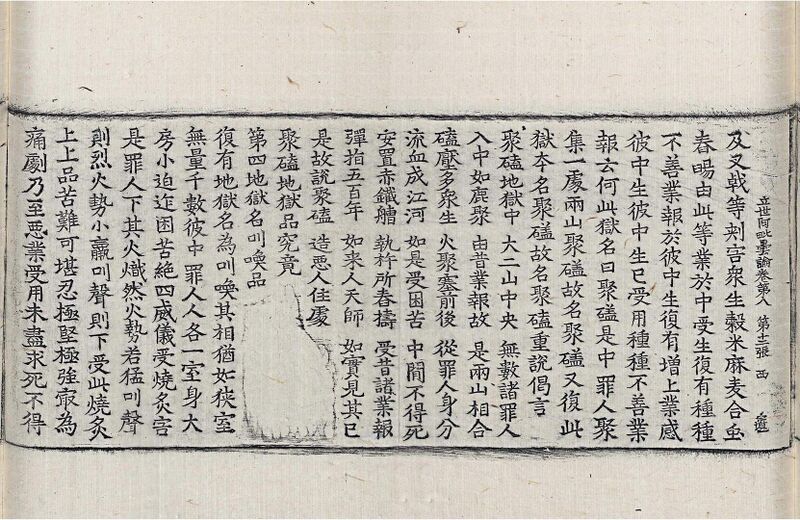 立世阿毗曇論卷第八 第十二張 西
及叉戟等刺害衆生穀米麻麦合虫
舂暘由此等業於中受生復有種種
不善業報於彼中生復有增上業感
彼中生彼中生已受用種種不善業
報云何此獄名曰聚磕是中罪人聚
集一處兩山聚磕故名聚磕又復此
獄夲名聚磕故名聚磕重說偈言
聚磕地獄中 大二山中央 無數諸罪人
入中如鹿聚 由昔業報故 是兩山相合
磕壓多衆生 火聚塞前後 從罪人身分
流血成江河 如是受困苦 中間不得死
安置赤鐵艚 執杵所舂擣 受昔諸業報
彈指五百年 如来人天師 如實見其已
是故說聚磕 造惡人住處
聚磕地獄品究竟
第四地獄名叫喚品
復有地獄名為叫喚其相猶如狹室
無量千數彼中罪人人各一室身大
房小迫迮困苦絕四威儀受燒炙害
是罪人下其火熾然火勢若猛叫聲
則烈火勢小羸叫聲則下受此燒炙
上上品苦難可堪忍極堅極強㝡為
痛劇乃至惡業受用未盡求死不得